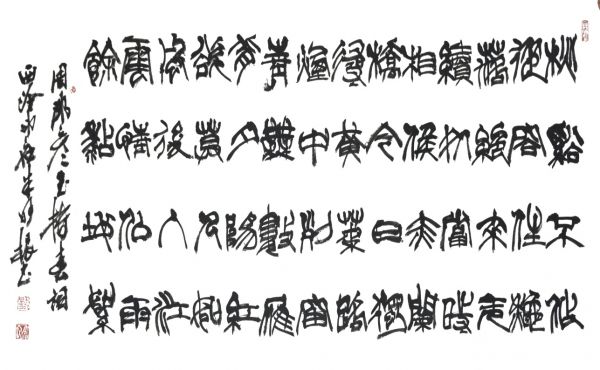 桃溪不作
從容住秋
藕絕來無
續處當時
相候赤闌
橋今日獨
尋黃葉路
煙中列岫
青無數雁
背夕陽紅
欲暮人如
風後入江
雲情似雨
餘黏地絮
周邦彥玉樓春詞
西泠